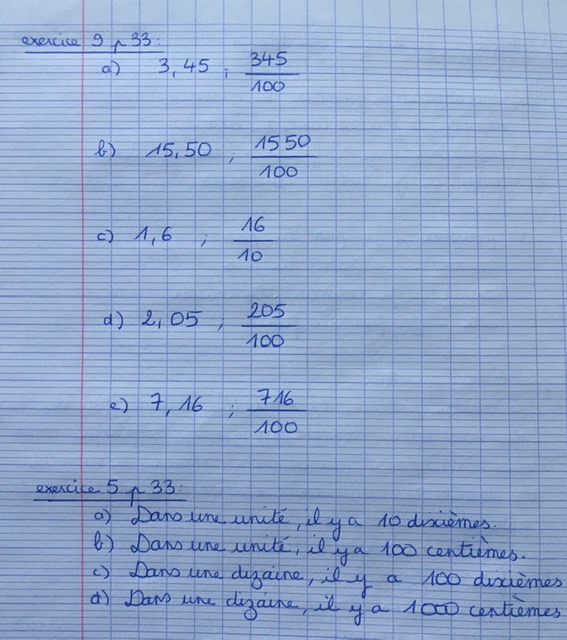 exercice 9 p 33:
a) 3,45 ; 345/100
b) 15,50 ; 1550/100
c) 1,6 ; 16/10
d) 2,05 ; 205/100
e) 7,16 ; 716/100
exercice 5 p 33:
a) Dans une unité, il y a 10 dixièmes.
b) Dans une unité, il y a 100 centièmes.
c) Dans une dizaine, il y a 100 dixièmes
d) Dans une dizaine, il y a 1000 centièmes